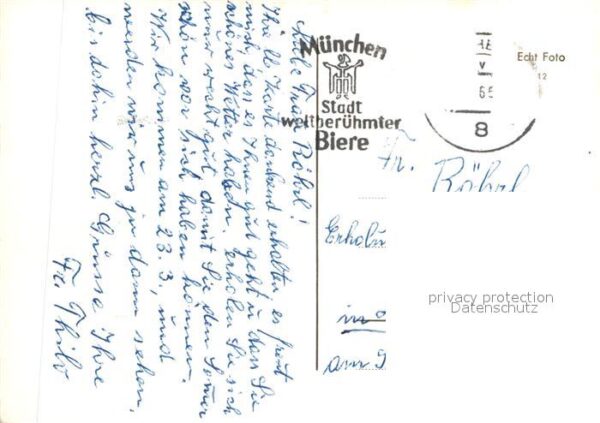 Liebe Frau Röhrl!
Ihre lb. Karte dankend erhalten, es freut
mich, das es Ihnen gut geht u. das Sie
schönes Wetter haben. erholen Sie sich
nur recht gut, damit Sie den Somer
schön vor sich haben können.
Wir kommen am 23.3, und
werden wir uns ja dann sehen,
bis dahin herzl. Grüsse Ihre
Fr. Thilo
München
Stadt
weltberühmter
Biere
18
V
65
8
Echt Foto
12
Fr. Röhrl
Erholun
in
am
privacy protection
Datenschutz